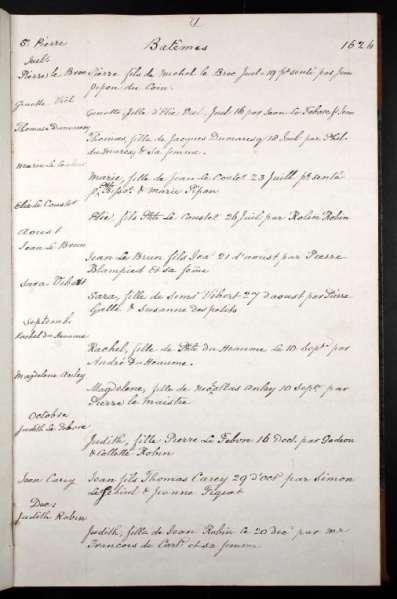 St. Pierre Batêmes 1626
Juill
Pierre le Broc Pierre fils de Michel le Broc Juil. 19 ptsenté par Jean
Pipon du Coin.
Genette Viel
Genette, fille d'Elie Viel, Juil. 16 par Jean Le Febvre & Jean
Thomasse Dumaresq
Thomasse, fille de Jacques Dumaresq 18 Juil. par Phil.
dumaresq & sa femme.
Marie le Coutest
Marie, fille de Jean le Coutest 23 Juill ptsenté
p. & Marie Pipon
Elie le Coustet
Elie, fils le Coustet 26 Juil. par Robin Robin
Aoust
Jean le Brun
Jean Le Brun fils 21 d'aoust par Pierre
Blampied et sa femme
Sara Vibert
Sara, fille de Vibert 27 d'aoust par Pierre
Galle & Susanne
Septemb
Rachel du Heaume
Rachel, fille de du Heaume le 10 Septr par
André du Heaume.
Magdelene Anley
Magdelene, fille de Nicollas Anley 10 Septr par
Pierre le Maistre
Octobre
Judith Le Febvre
Judith, fille Pierre Le Febvre 16 d'oct. par Gedeon
& Collette Robin
Jean Carey Jean fils Thomas Carey 29 d'oct par Simon
& Jeanne Piquet
Dec:
Judith Robin
Judith, fille de Jean Robin le 20 dec par mr
Francois du et sa femme